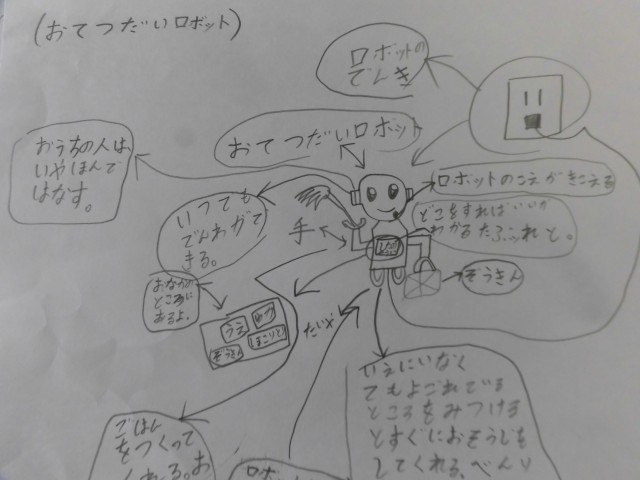 (おてつだいロボット)
ロボットの
でんき
おうちの人は、
いやほんで
はなす。
おてつだいロボット
ロボットのこえがきこえる
いつでも
でんわがで
きる。
手
どこをすればいいか
わかるたぶれっと。
ぞうきん
おなかの
ところに
あるよ。
うえ
ほこりとり
ぞうきん
いえにいなく
てもよごれている
ところをみつける
とすぐにおそうじを
してくれる、べんり
ごはん
をつくって
くれる。お
ロボット